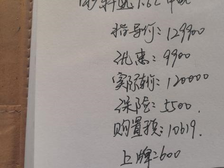 指导价: 129900
优惠: 9900
实际价: 120000
保险: 5500.
购置税: 10619.
上牌: 600